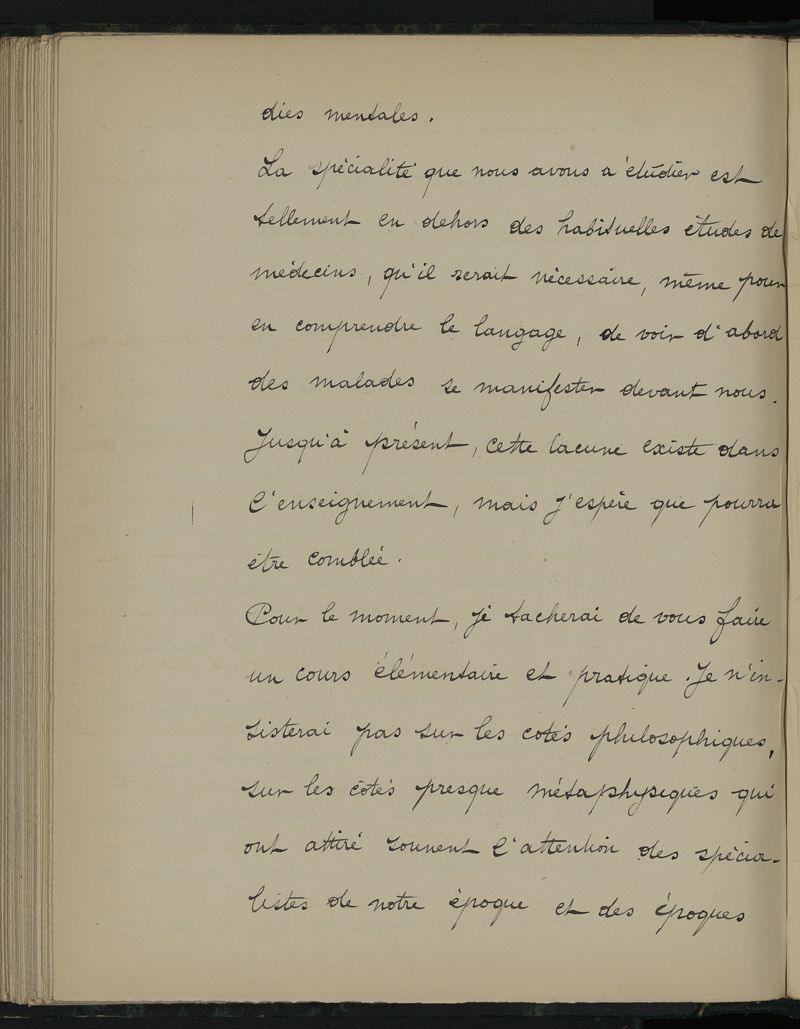 dies mentales.
La spécialité que nous avons a étudier est
tellement en dehors des habituelles études de
médecins, qu'il serait nécessaire, même pour
en comprendre le langage, de voir d'abord
des malades se manifester devant nous.
Jusqu'à présent, cette lacune existe dans
l'enseignement, mais j'espère que pourra
être comblée.
Pour le moment, je tacherai de vous faire
un cours élémentaire et pratique. Je n'in-
sisterai pas sur les cotés philosophiques,
sur les côtés presque métaphysiques qui
ont attiré souvent l'attention des spécia-
listes de notre époque et des époques